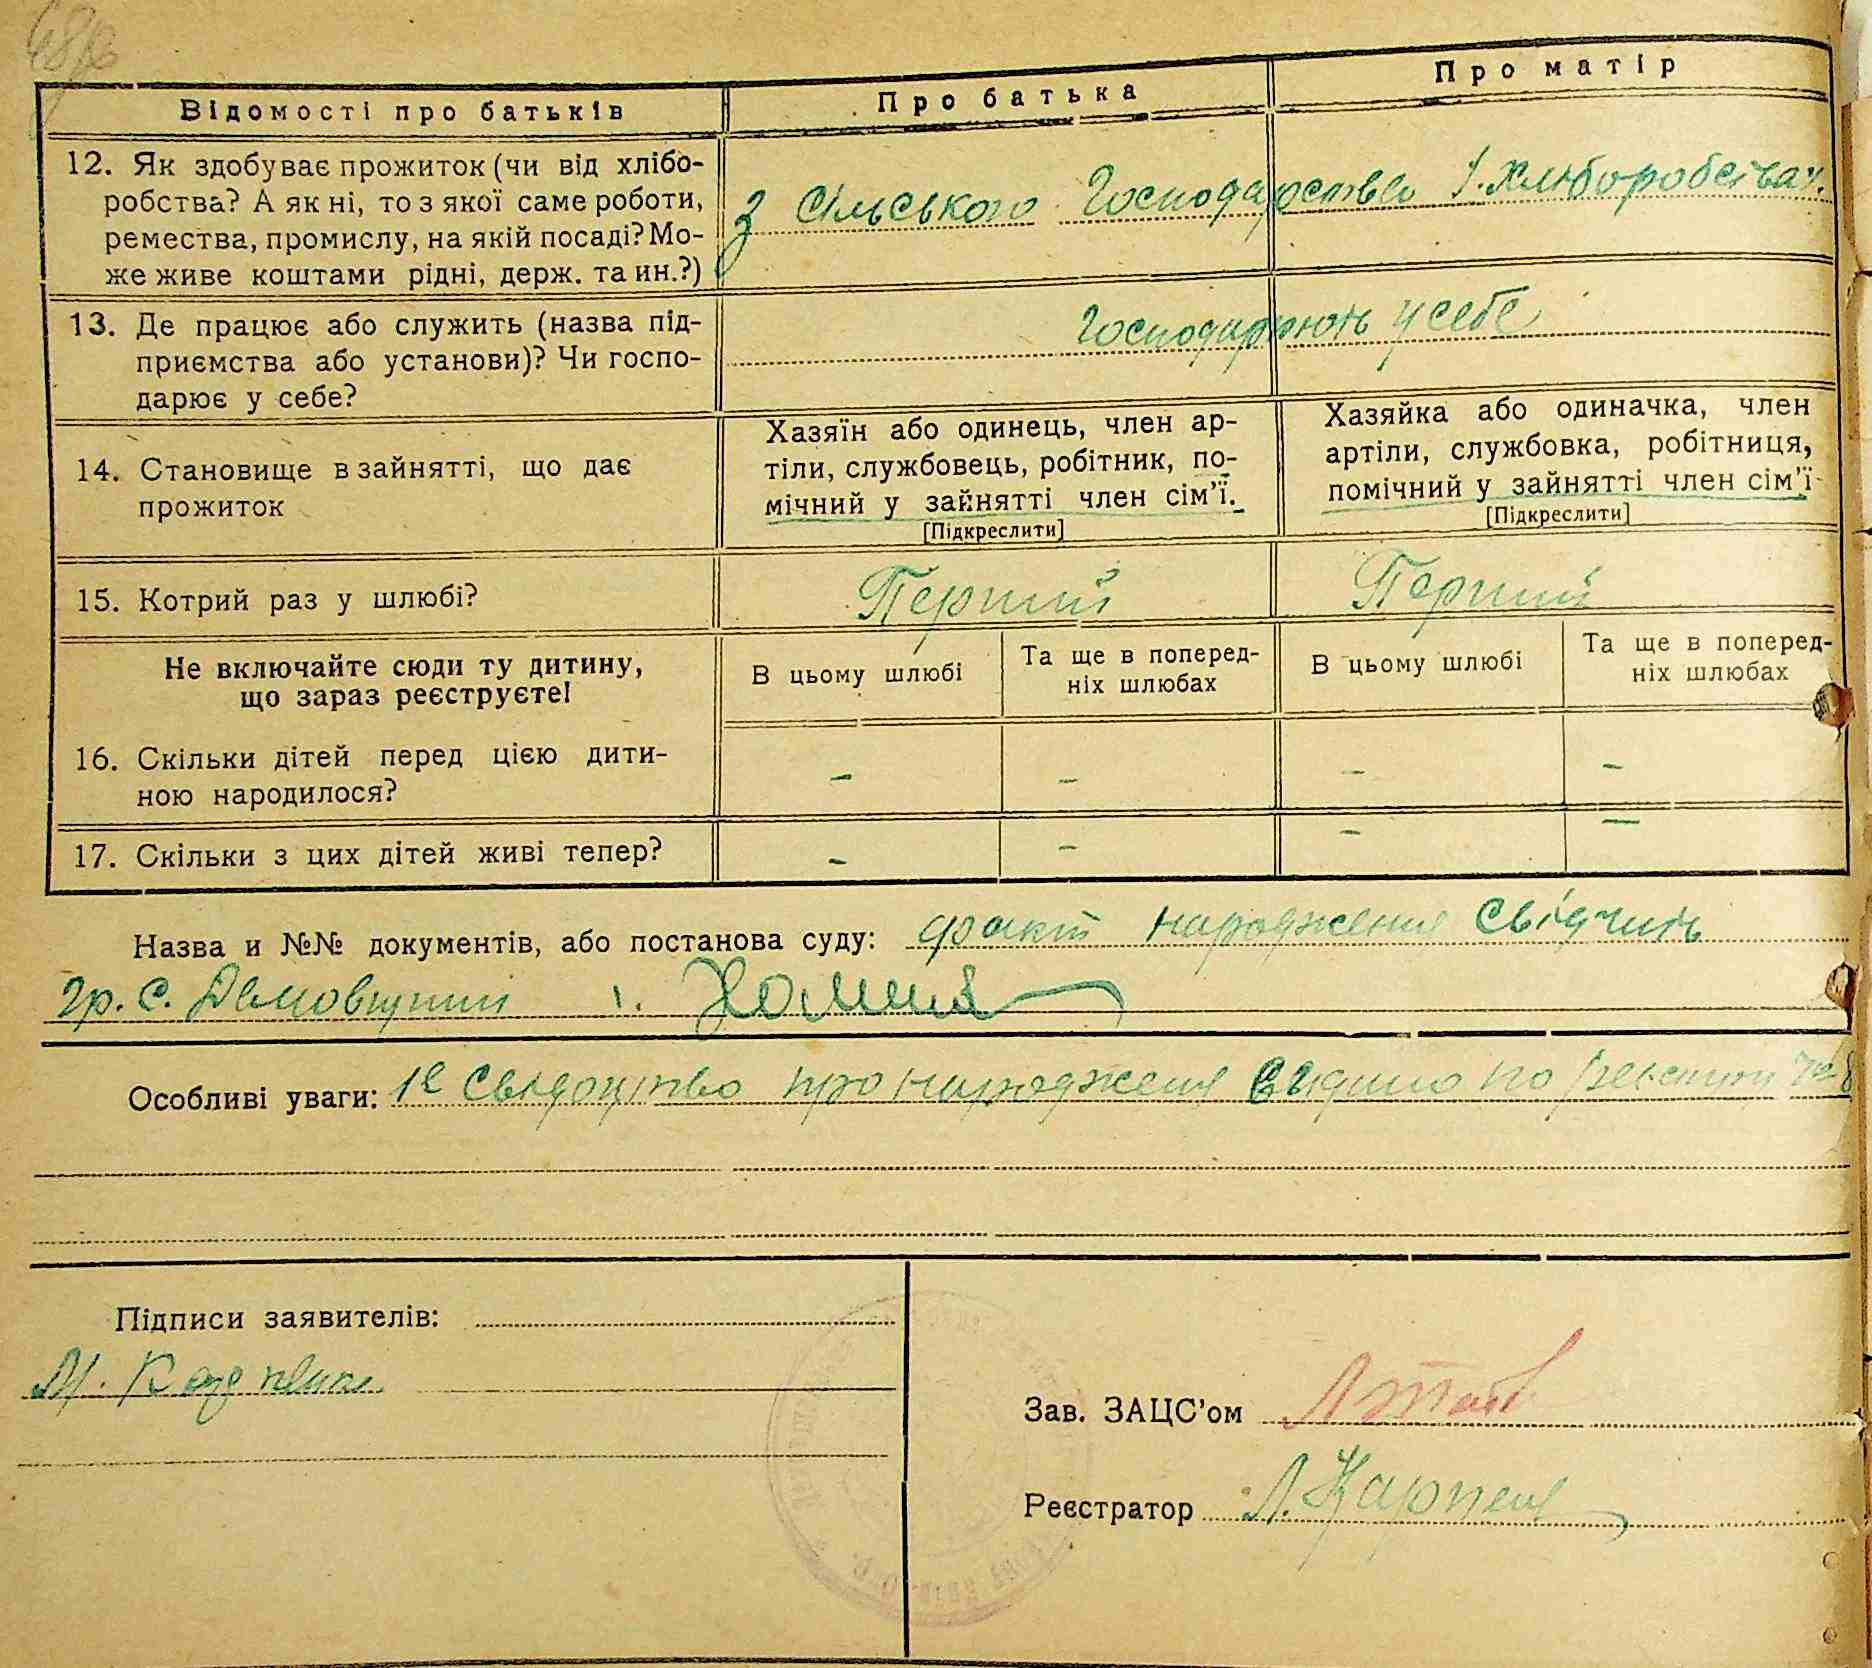 Відомості про батьків
Про батька
Про матір
12. Як здобуває прожиток (чи від хлібо-
робства? А як ні, то з якої саме роботи,
ремества, промислу, на якій посаді? Мо-
же живе коштами рідні, держ. та ин.?)
з сільського господарства
13. Де працює або служить (назва під-
приємства або установи)? Чи госпо-
дарює у себе?
Господарюють у себе
14. Становище в зайнятті, що дає
прожиток
Хазяїн або одинець, член ар-
тіли, службовець, робітник, по-
мічний у зайнятті член сім'ї.
[Підкреслити]
Хазяйка або одиначка, член
артіли, службовка, робітниця,
помічний у зайнятті член сім'ї
[Підкреслити]
15. Котрий раз у шлюбі?
Перший
Перший
Не включайте сюди ту дитину,
що зараз реєструєте!
В цьому шлюбі
Та ще в поперед-
ніх шлюбах
В цьому шлюбі
Та ще в поперед-
ніх шлюбах
16. Скільки дітей перед цією дити-
ною народилося?
– – – –
17. Скільки з цих дітей живі тепер?
– – – –
Назва и №№ документів, або постанова суду: факт народження свідчить
гр. с.
Особливі уваги: свідоцтво про народження видано по
Підписи заявителів:
М.
Зав. ЗАЦС'ом
Реєстратор Л.